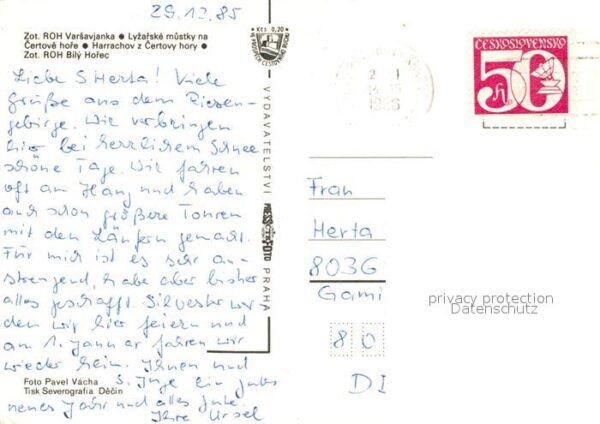 29.12.85
Zot. ROH Varšavjanka ● Lyžařské můstky na
Čertově hoře ● Harrachov z Čertovy hory ●
Zot. ROH Bílý Hořec
Kčs 0,20
Liebe S Herta! Viele
grüße aus dem Riesen-
gebirge. Wir verbringen
hier bei herrlichem Schnee
schöne Tage. Wir fahren
oft am Hang und haben
auch schon größere Touren
mit den Läufern gemacht.
Für mich ist es sehr an-
strengend, habe aber bisher
alles geschafft. Silvester wer
den wir hier feiern und
am 1. Januar fahren wir
wieder heim. Ihnen und
S. Inge ein gutes
neues Jahr und alles Gute.
Ihre Ursel
Foto Pavel Vácha
Tisk Severografia Děčín
VYDAVATELSTVÍ
PRAHA
1986
ČESKOSLOVENSKO
50 h
Frau
Herta
8036
Gami
80
DI
privacy protection
Datenschutz